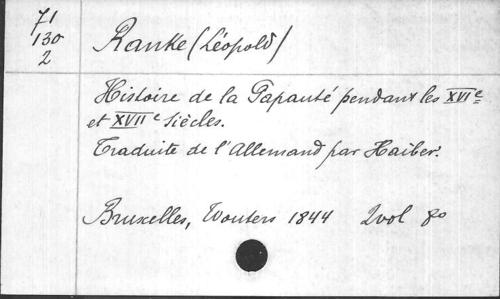 71
130
2
Ranke (Léopold)
Histoire de la Papauté pendant les XVIe
et XVIIe Siècles.
Traduite de l'Allemand par Haiber.
Bruxelles, Wouters 1844 2vol 8o